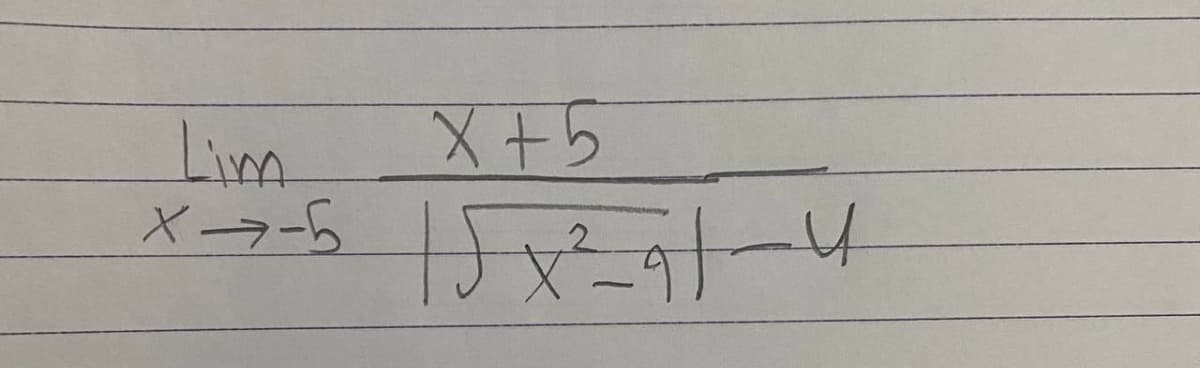 Lim x + 5
x → -5 |√x² - 9| - 4